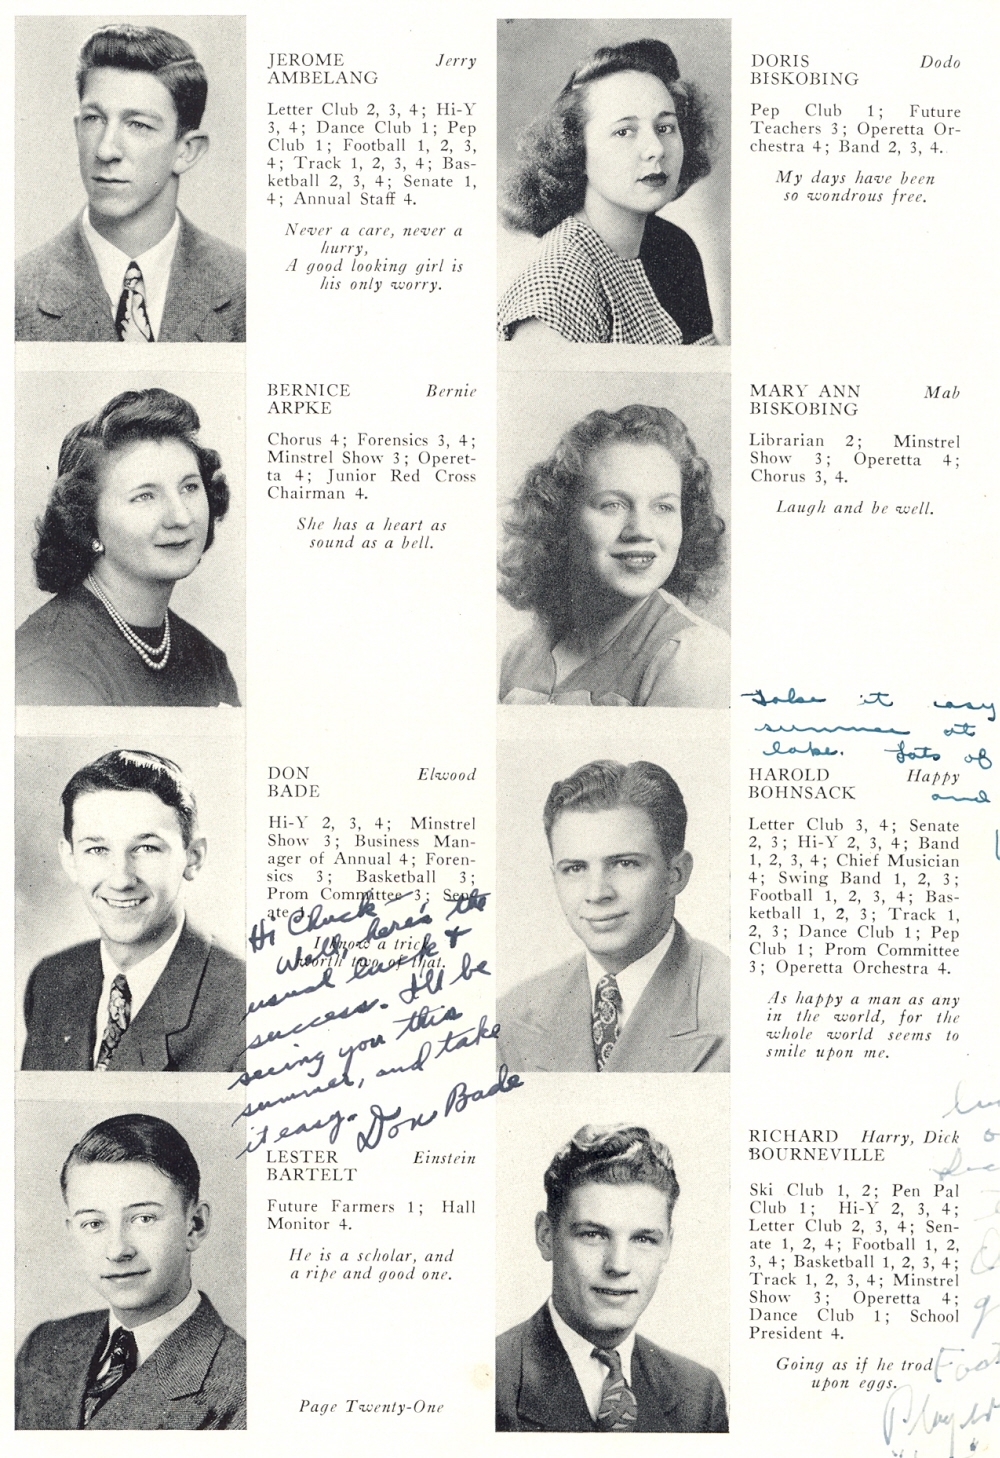 JEROME Jerry
AMBELANG
Letter Club 2, 3, 4; Hi-Y
3, 4; Dance Club 1; Pep
Club 1; Football 1, 2, 3,
4; Track 1, 2, 3, 4; Bas-
ketball 2, 3, 4; Senate 1,
4; Annual Staff 4.
Never a care, never a
hurry,
A good looking girl is
his only worry.
BERNICE Bernie
ARPKE
Chorus 4; Forensics 3, 4;
Minstrel Show 3; Operet-
ta 4; Junior Red Cross
Chairman 4.
She has a heart as
sound as a bell.
DON Elwood
BADE
Hi-Y 2, 3, 4; Minstrel
Show 3; Business Man-
ager of Annual 4; Foren-
sics 3; Basketball 3;
Prom Committee 3; Sen-
ate 1.
I know a trick
worth two of that.
Hi Chuck
Well, here's the
usual luck &
success. I'll be
seeing you this
summer, and take
it easy.
Don Bade
LESTER Einstein
BARTELT
Future Farmers 1; Hall
Monitor 4.
He is a scholar, and
a ripe and good one.
Page Twenty-One
DORIS Dodo
BISKOBING
Pep Club 1; Future
Teachers 3; Operetta Or-
chestra 4; Band 2, 3, 4.
My days have been
so wondrous free.
MARY ANN Mab
BISKOBING
Librarian 2; Minstrel
Show 3; Operetta 4;
Chorus 3, 4.
Laugh and be well.
Take it easy
summer at
lake. Lots of
and
HAROLD Happy
BOHNSACK
Letter Club 3, 4; Senate
2, 3; Hi-Y 2, 3, 4; Band
1, 2, 3, 4; Chief Musician
4; Swing Band 1, 2, 3;
Football 1, 2, 3, 4; Bas-
ketball 1, 2, 3; Track 1,
2, 3; Dance Club 1; Pep
Club 1; Prom Committee
3; Operetta Orchestra 4.
As happy a man as any
in the world, for the
whole world seems to
smile upon me.
RICHARD Harry, Dick
BOURNEVILLE
Ski Club 1, 2; Pen Pal
Club 1; Hi-Y 2, 3, 4;
Letter Club 2, 3, 4; Sen-
ate 1, 2, 4; Football 1, 2,
3, 4; Basketball 1, 2, 3, 4;
Track 1, 2, 3, 4; Minstrel
Show 3; Operetta 4;
Dance Club 1; School
President 4.
Going as if he trod
upon eggs.